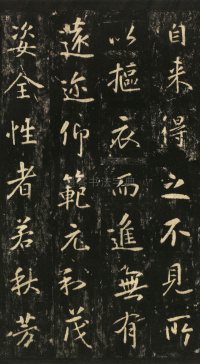 自来得之不見所
以摳衣而進無有
遠迩仰範元和茂
姿全性者若秋芳